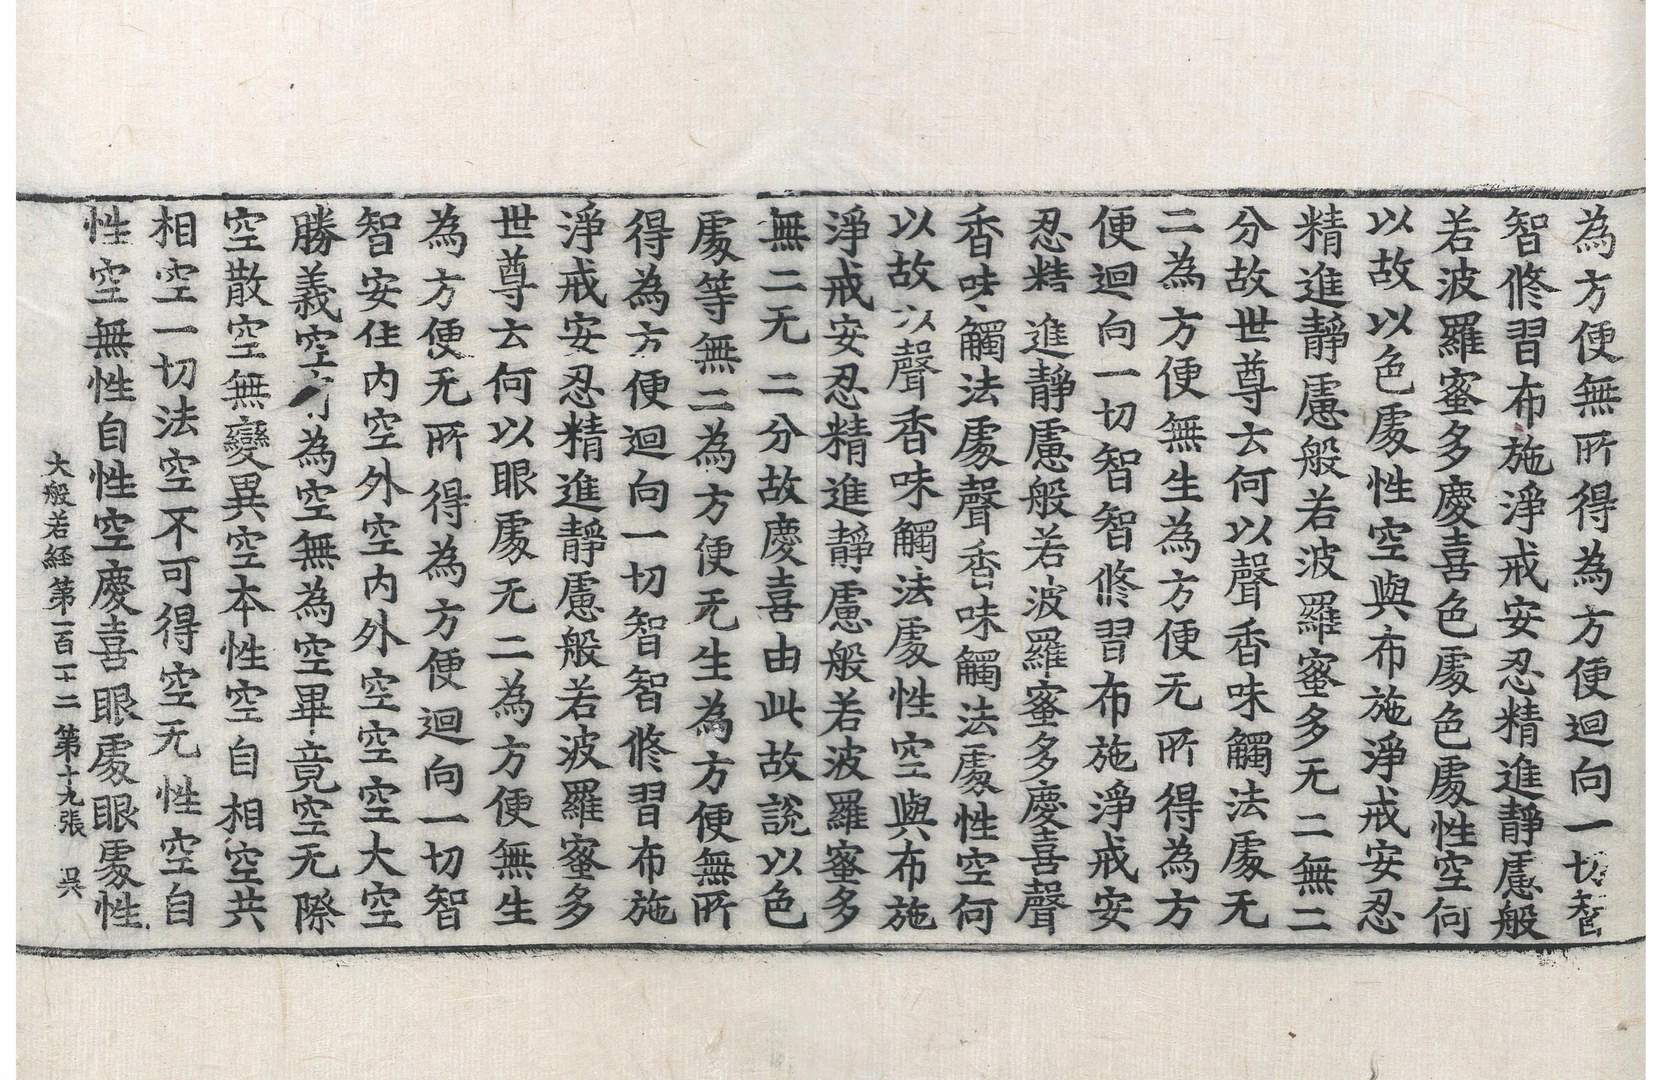 為方便無所得為方便迴向一切智
智修習布施淨戒安忍精進靜慮般
若波羅蜜多慶喜色處色處性空何
以故以色處性空與布施淨戒安忍
精進靜慮般若波羅蜜多无二無二
分故世尊云何以聲香味觸法處无
二為方便無生為方便无所得為方
便迴向一切智智修習布施淨戒安
忍精進靜慮般若波羅蜜多慶喜聲
香味觸法處聲香味觸法處性空何
以故以聲香味觸法處性空與布施
淨戒安忍精進靜慮般若波羅蜜多
無二无二分故慶喜由此故說以色
處等無二為方便无生為方便無所
得為方便迴向一切智智修習布施
淨戒安忍精進靜慮般若波羅蜜多
世尊云何以眼處无二為方便無生
為方便无所得為方便迴向一切智
智安住內空外空內外空空空大空
勝義空有為空無為空畢竟空无際
空散空無變異空本性空自相空共
相空一切法空不可得空无性空自
性空無性自性空慶喜眼處眼處性
大般若経第一百一十二 第十九張 吳